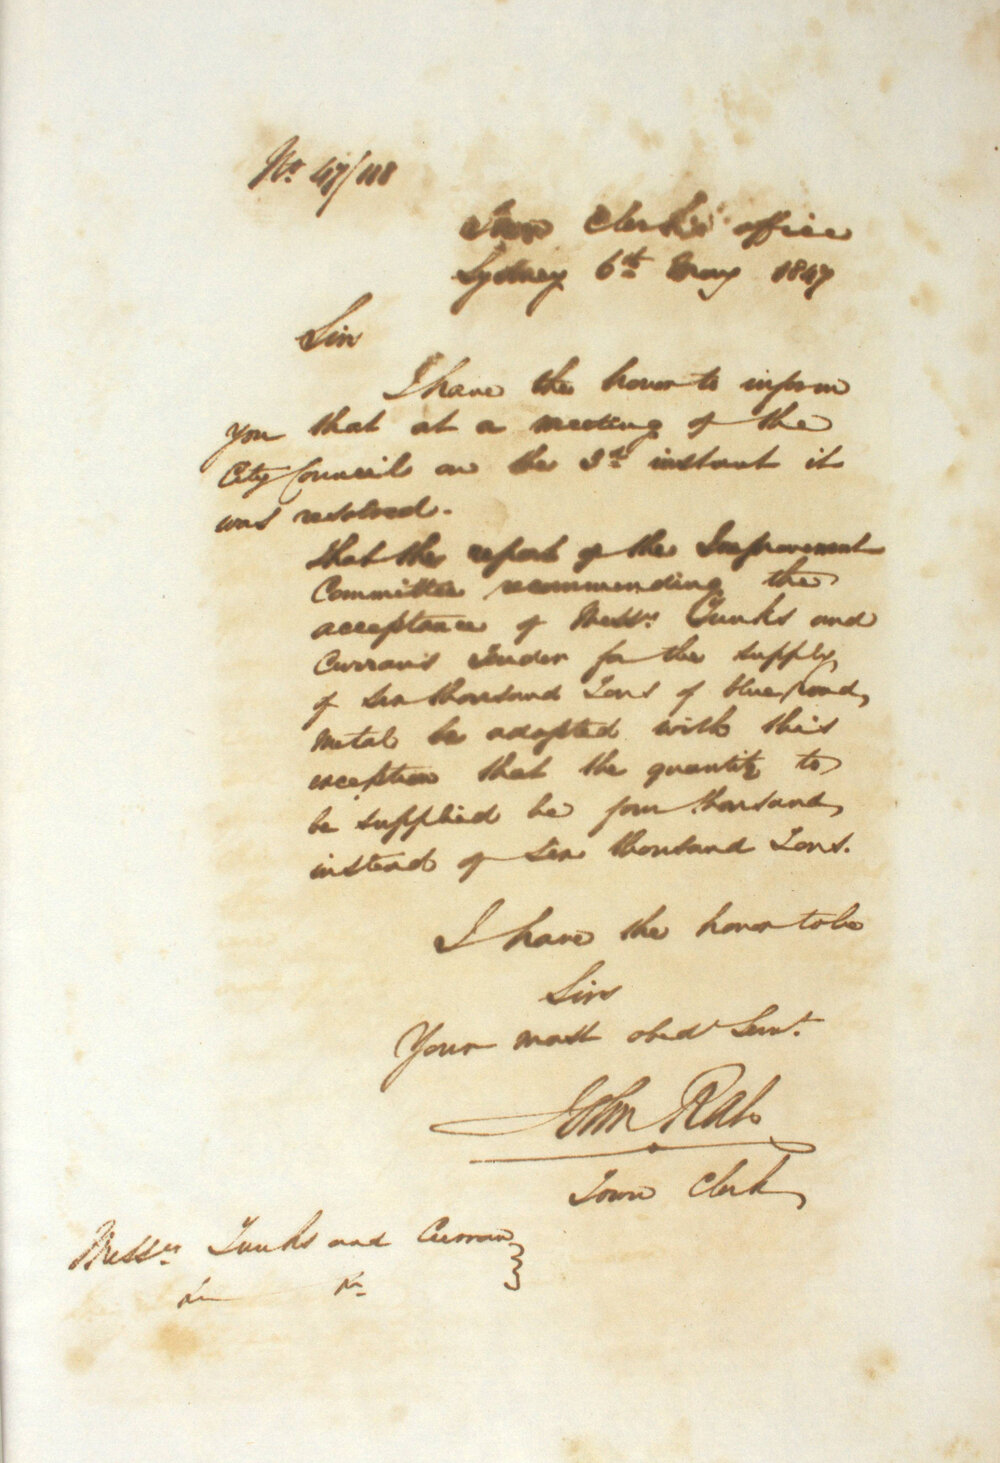 No. 47/118
Town Clerk's office
Sydney 6th May 1847
Sir
I have the honor to inform
you that at a meeting of the
City Council on the 3d instant it
was resolved.
that the report of the Improvement
Committee recommending the
acceptance of Messrs Tunks and
Curran's Tender for the supply
of six thousand Tons of blue road
Metal be adopted with this
exception that the quantity to
be supplied be four thousand
instead of six thousand Tons.
I have the honor to be
Sirs
Your most obedt Servt.
John Rae
Town Clerk
Messrs Tunks and Curran